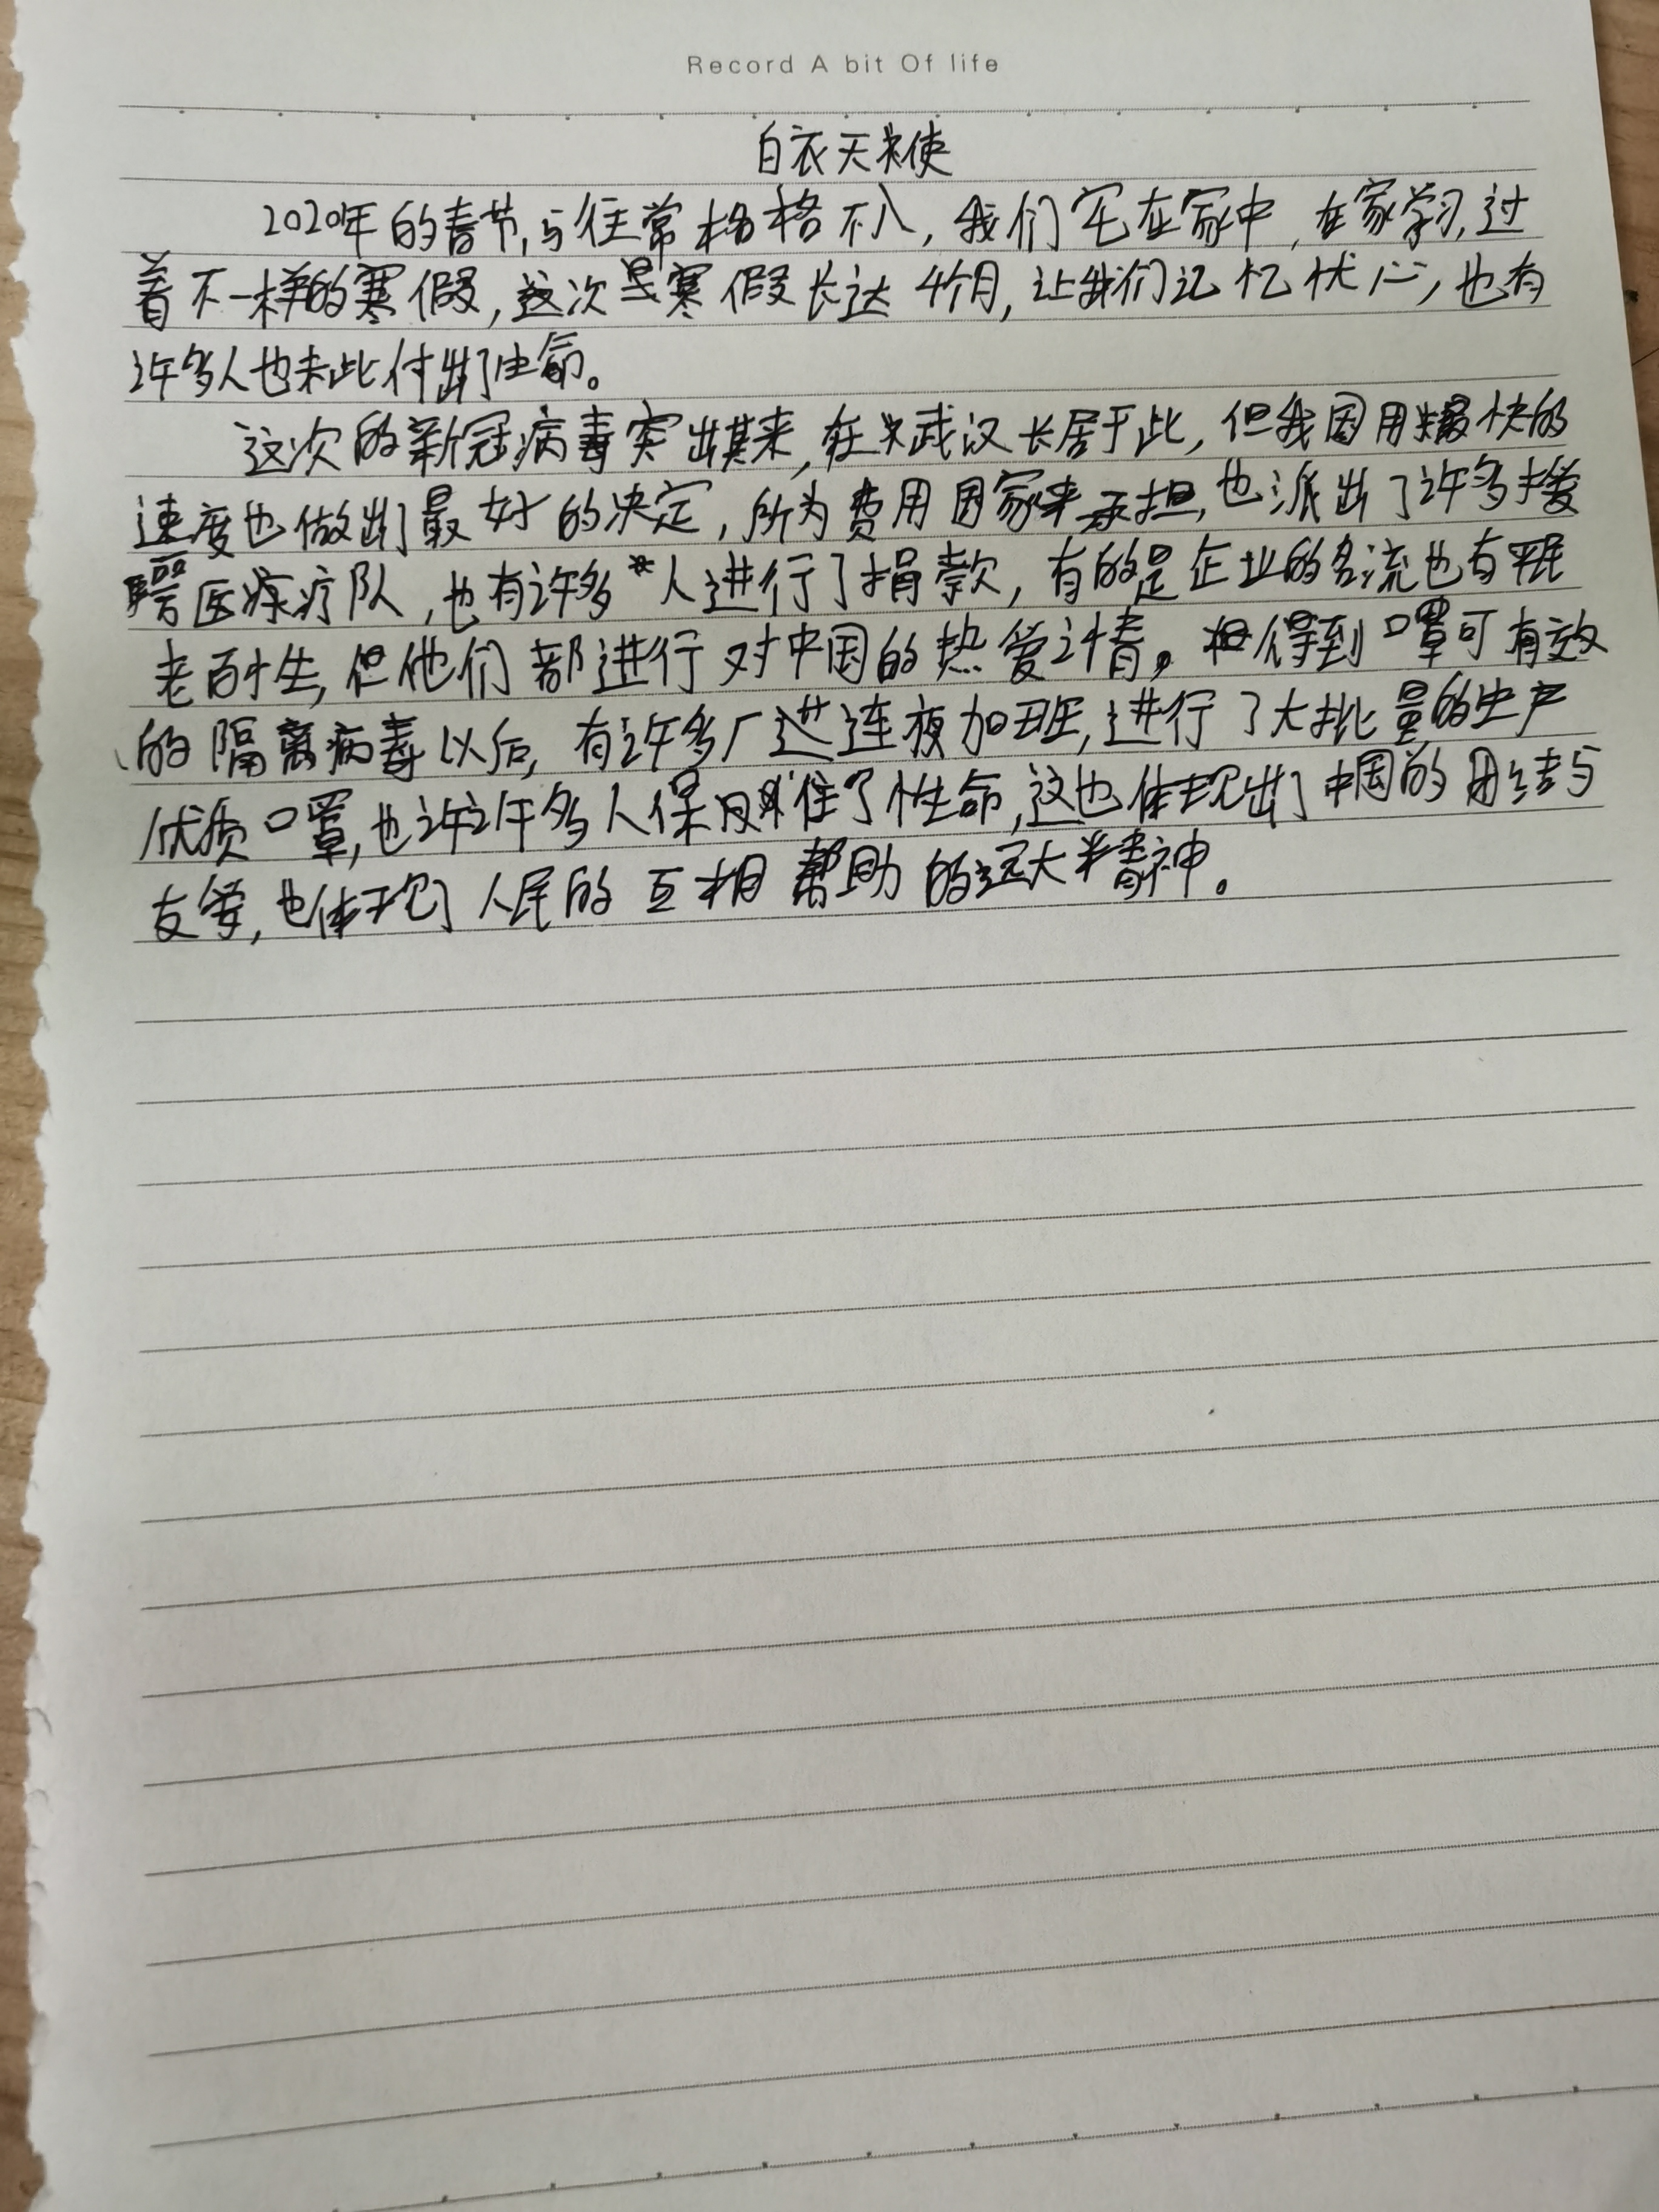 Record A bit Of life
白衣天使
2020年的春节,与往常格格不入,我们宅在家中,在家学习,过
着不一样的寒假,这次寒假长达4个月,让我们记忆忧心,也有
许多人也未此付出了生命。
这次的新冠病毒突出其来,在武汉长居于此,但我国用最快的
速度也做出了最好的决定,所为费用国家来承担,也派出了许多援
医疗队,也有许多人进行了捐款,有的是企业的名流也有平民
老百姓,但他们都进行对中国的热爱之情。得到口罩可有效
的隔离病毒以后,有许多厂连夜加班,进行了大批量的生产
优质口罩,也许许多人保住了性命,这也体现出了中国的团结与
友爱,也体现了人民的互相帮助的远大精神。